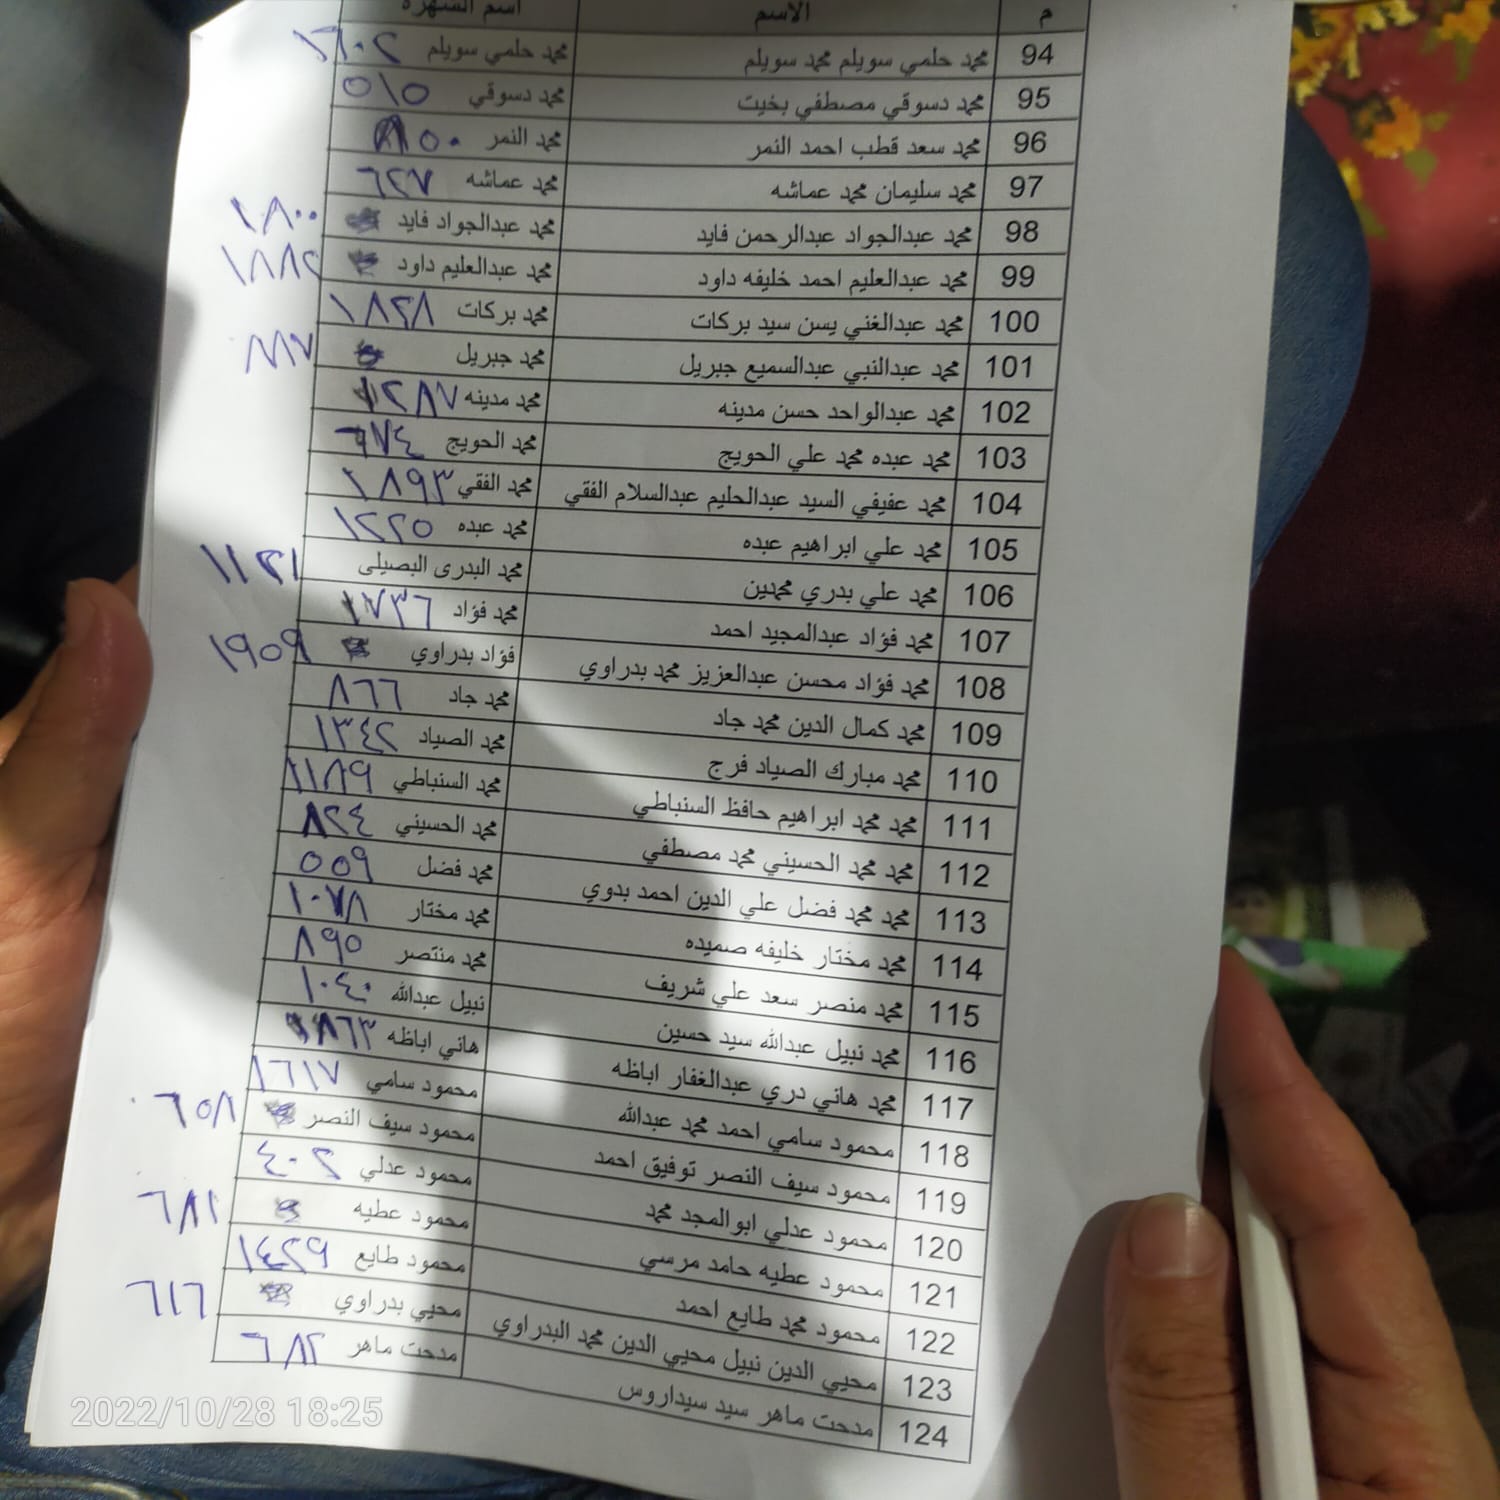 م الاسم اسم الشهرة
94 محمد حلمي سويلم محمد سويلم محمد حلمي سويلم ١٦٠٢
95 محمد دسوقي مصطفي بخيت محمد دسوقي ٥١٥
96 محمد سعد قطب احمد النمر محمد النمر
97 محمد سليمان محمد عماشه محمد عماشه ٦٢٧
98 محمد عبدالجواد عبدالرحمن فايد محمد عبدالجواد فايد ١٨٠٠
99 محمد عبدالعليم احمد خليفه داود محمد عبدالعليم داود ١٨٨٢
100 محمد عبدالغني يسن سيد بركات محمد بركات ١٨٢٨
101 محمد عبدالنبي عبدالسميع جبريل محمد جبريل
102 محمد عبدالواحد حسن مدينه محمد مدينه ١٢٨٧
103 محمد عبده محمد علي الحويج محمد الحويج ٦٧٤
104 محمد عفيفي السيد عبدالحليم عبدالسلام الفقي محمد الفقي ١٨٩٣
105 محمد علي ابراهيم عبده محمد عبده ١٢٢٥
106 محمد علي بدري محمدين محمد البدرى البصيلى ١١٢١
107 محمد فؤاد عبدالمجيد احمد محمد فؤاد ١٧٣٦
108 محمد فؤاد محسن عبدالعزيز محمد بدراوي فؤاد بدراوي ١٩٥٩
109 محمد كمال الدين محمد جاد محمد جاد ٨٦٦
110 محمد مبارك الصياد فرج محمد الصياد ١٣٤٢
111 محمد محمد ابراهيم حافظ السنباطي محمد السنباطي ١١٨٩
112 محمد محمد الحسيني محمد مصطفي محمد الحسيني ٨٢٤
113 محمد محمد فضل علي الدين احمد بدوي محمد فضل ٥٥٩
114 محمد مختار خليفه صميده محمد مختار ١٠٧٨
115 محمد منصر سعد علي شريف محمد منتصر ٨٩٥
116 محمد نبيل عبدالله سيد حسين نبيل عبدالله ١٠٤٠
117 محمد هاني دري عبدالغفار اباظه هاني اباظه ١٨٦٣
118 محمود سامي احمد محمد عبدالله محمود سامي ١٦١٧
119 محمود سيف النصر توفيق احمد محمود سيف النصر ٦٥٨
120 محمود عدلي ابوالمجد محمد محمود عدلي ٤٠٢
121 محمود عطيه حامد مرسي محمود عطيه ٦٨١
122 محمود محمد طايع احمد محمود طايع ١٤٢٩
123 محيي الدين نبيل محيي الدين محمد البدراوي محيي بدراوي ٦١٦
124 مدحت ماهر سيد سيداروس مدحت ماهر ٦٨٢
2022/10/28 18:25